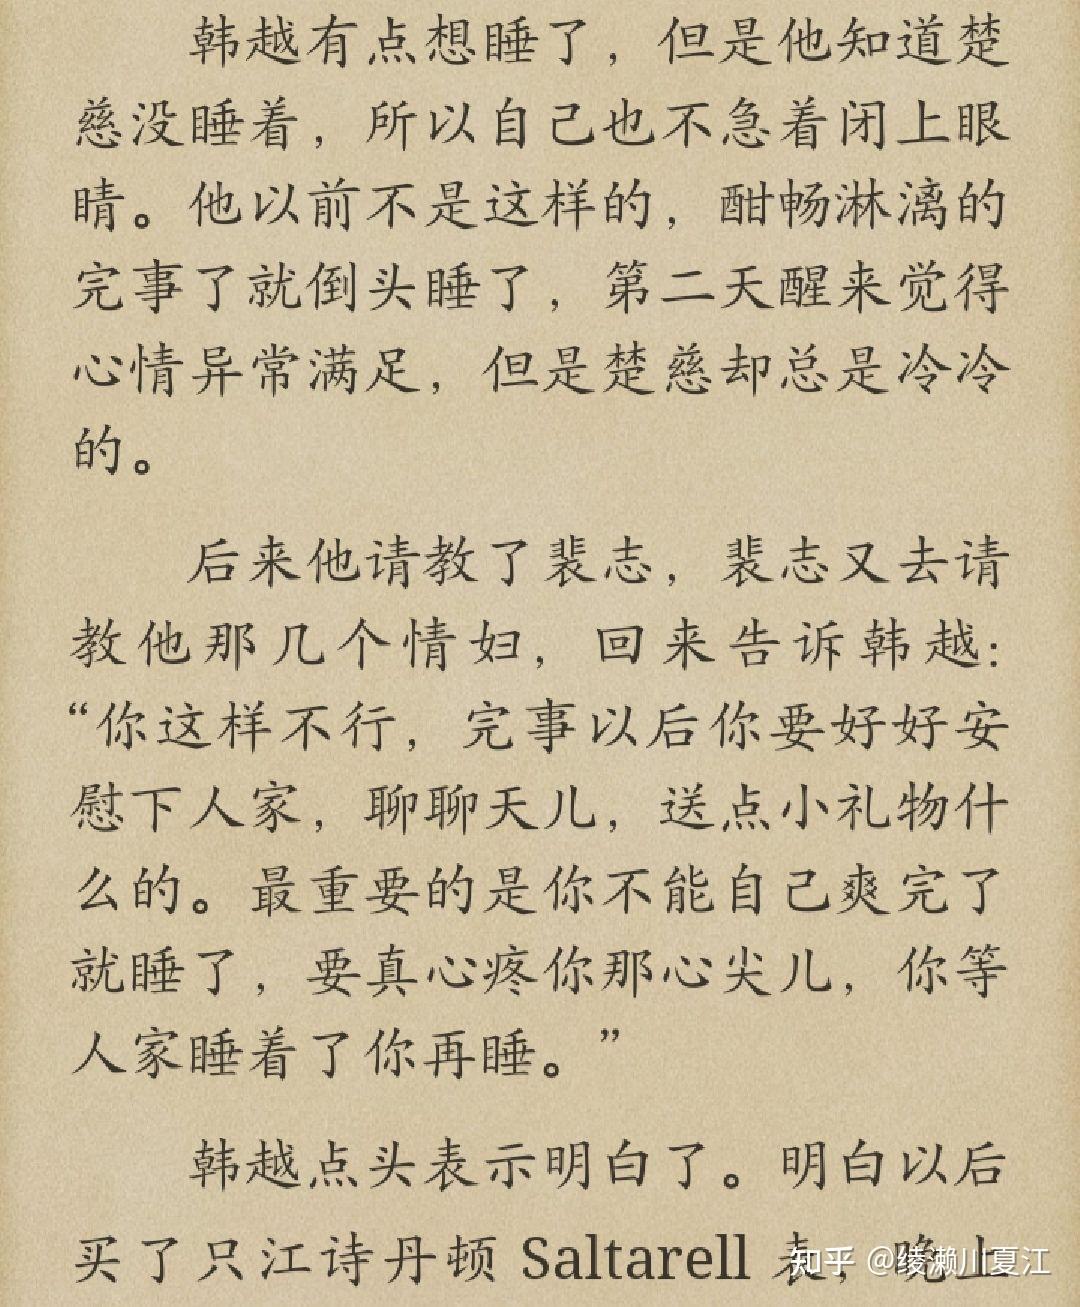 韩越有点想睡了，但是他知道楚
慈没睡着，所以自己也不急着闭上眼
睛。他以前不是这样的，酣畅淋漓的
完事了就倒头睡了，第二天醒来觉得
心情异常满足，但是楚慈却总是冷冷
的。
后来他请教了裴志，裴志又去请
教他那几个情妇，回来告诉韩越：
“你这样不行，完事以后你要好好安
慰下人家，聊聊天儿，送点小礼物什
么的。最重要的是你不能自己爽完了
就睡了，要真心疼你那心尖儿，你等
人家睡着了你再睡。”
韩越点头表示明白了。明白以后
买了只江诗丹顿 Saltarell 表，晚上
知乎 @绫濑川夏江